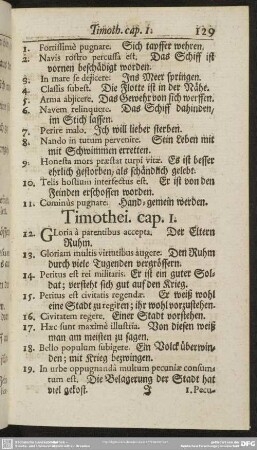 Timoth. cap. I. 129
1. Fortissimè pugnare. Sich tapffer wehren.
2. Navis rostro percussa est. Das Schiff ist
vornen beschädigt worden.
3. In mare se dejicere. Ins Meer springen.
4. Classis subest. Die Flotte ist in der Nähe.
5. Arma abjicere. Das Gewehr von sich werffen.
6. Navem relinquere. Das Schiff dahinden,
im Stich lassen.
7. Perire malo. Ich will lieber sterben.
8. Nando in tutum pervenire. Sein Leben mit
mit Schwimmen erretten.
9. Honesta mors præstat turpi vitæ. Es ist besser
ehrlich gestorben, als schändlich gelebt.
10. Telis hostium interfectus est. Er ist von den
Feinden erschossen worden.
11. Cominùs pugnare. Hand-gemein werden.
Timothei. cap. I.
12. GLoria à parentibus accepta. Der Eltern
Ruhm.
13. Gloriam multis virtutibus augere. Den Ruhm
durch viele Tugenden vergrössern.
14. Peritus est rei militaris. Er ist ein guter Sol-
dat; verstehet sich gut auf den Krieg.
15. Peritus est civitatis regendæ. Er weiß wohl
eine Stadt zu regieren; ihr wohl vorzustehen.
16. Civitatem regere. Einer Stadt vorstehen.
17. Hæc sunt maximè illustria. Von diesen weiß
man am meisten zu sagen.
18. Bello populum subigere. Ein Volck überwin-
den; mit Krieg bezwingen.
19. In urbe oppugnanda multum pecuniæ consum-
tum est. Die Belagerung der Stadt hat
viel gekost. J 1. Pecu-